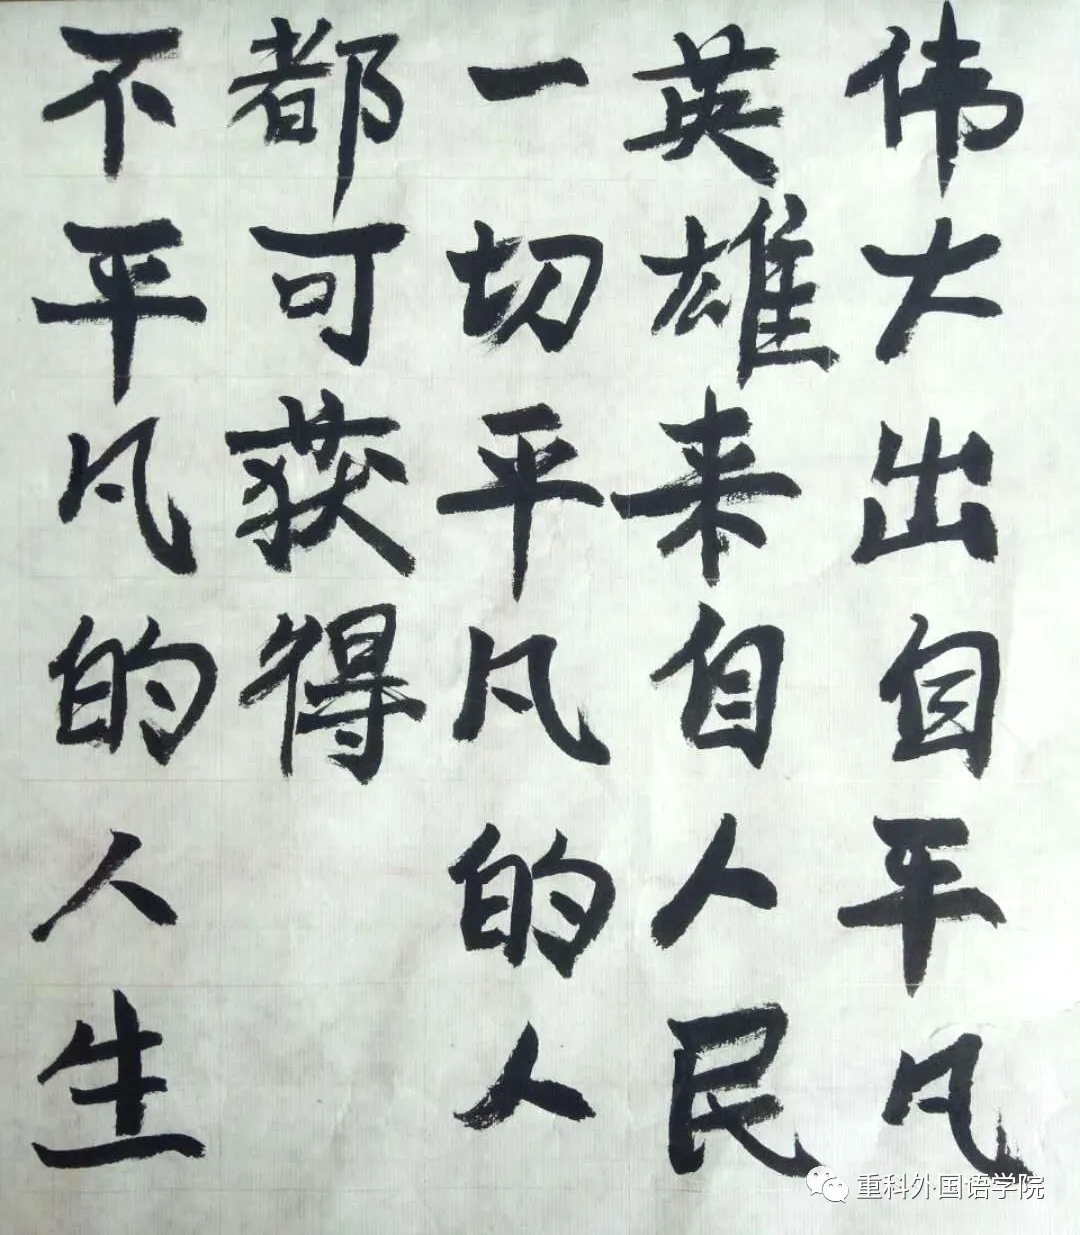 伟大出自平凡
英雄来自人民
一切平凡的人
都可获得
不平凡的人生
重科外国语学院